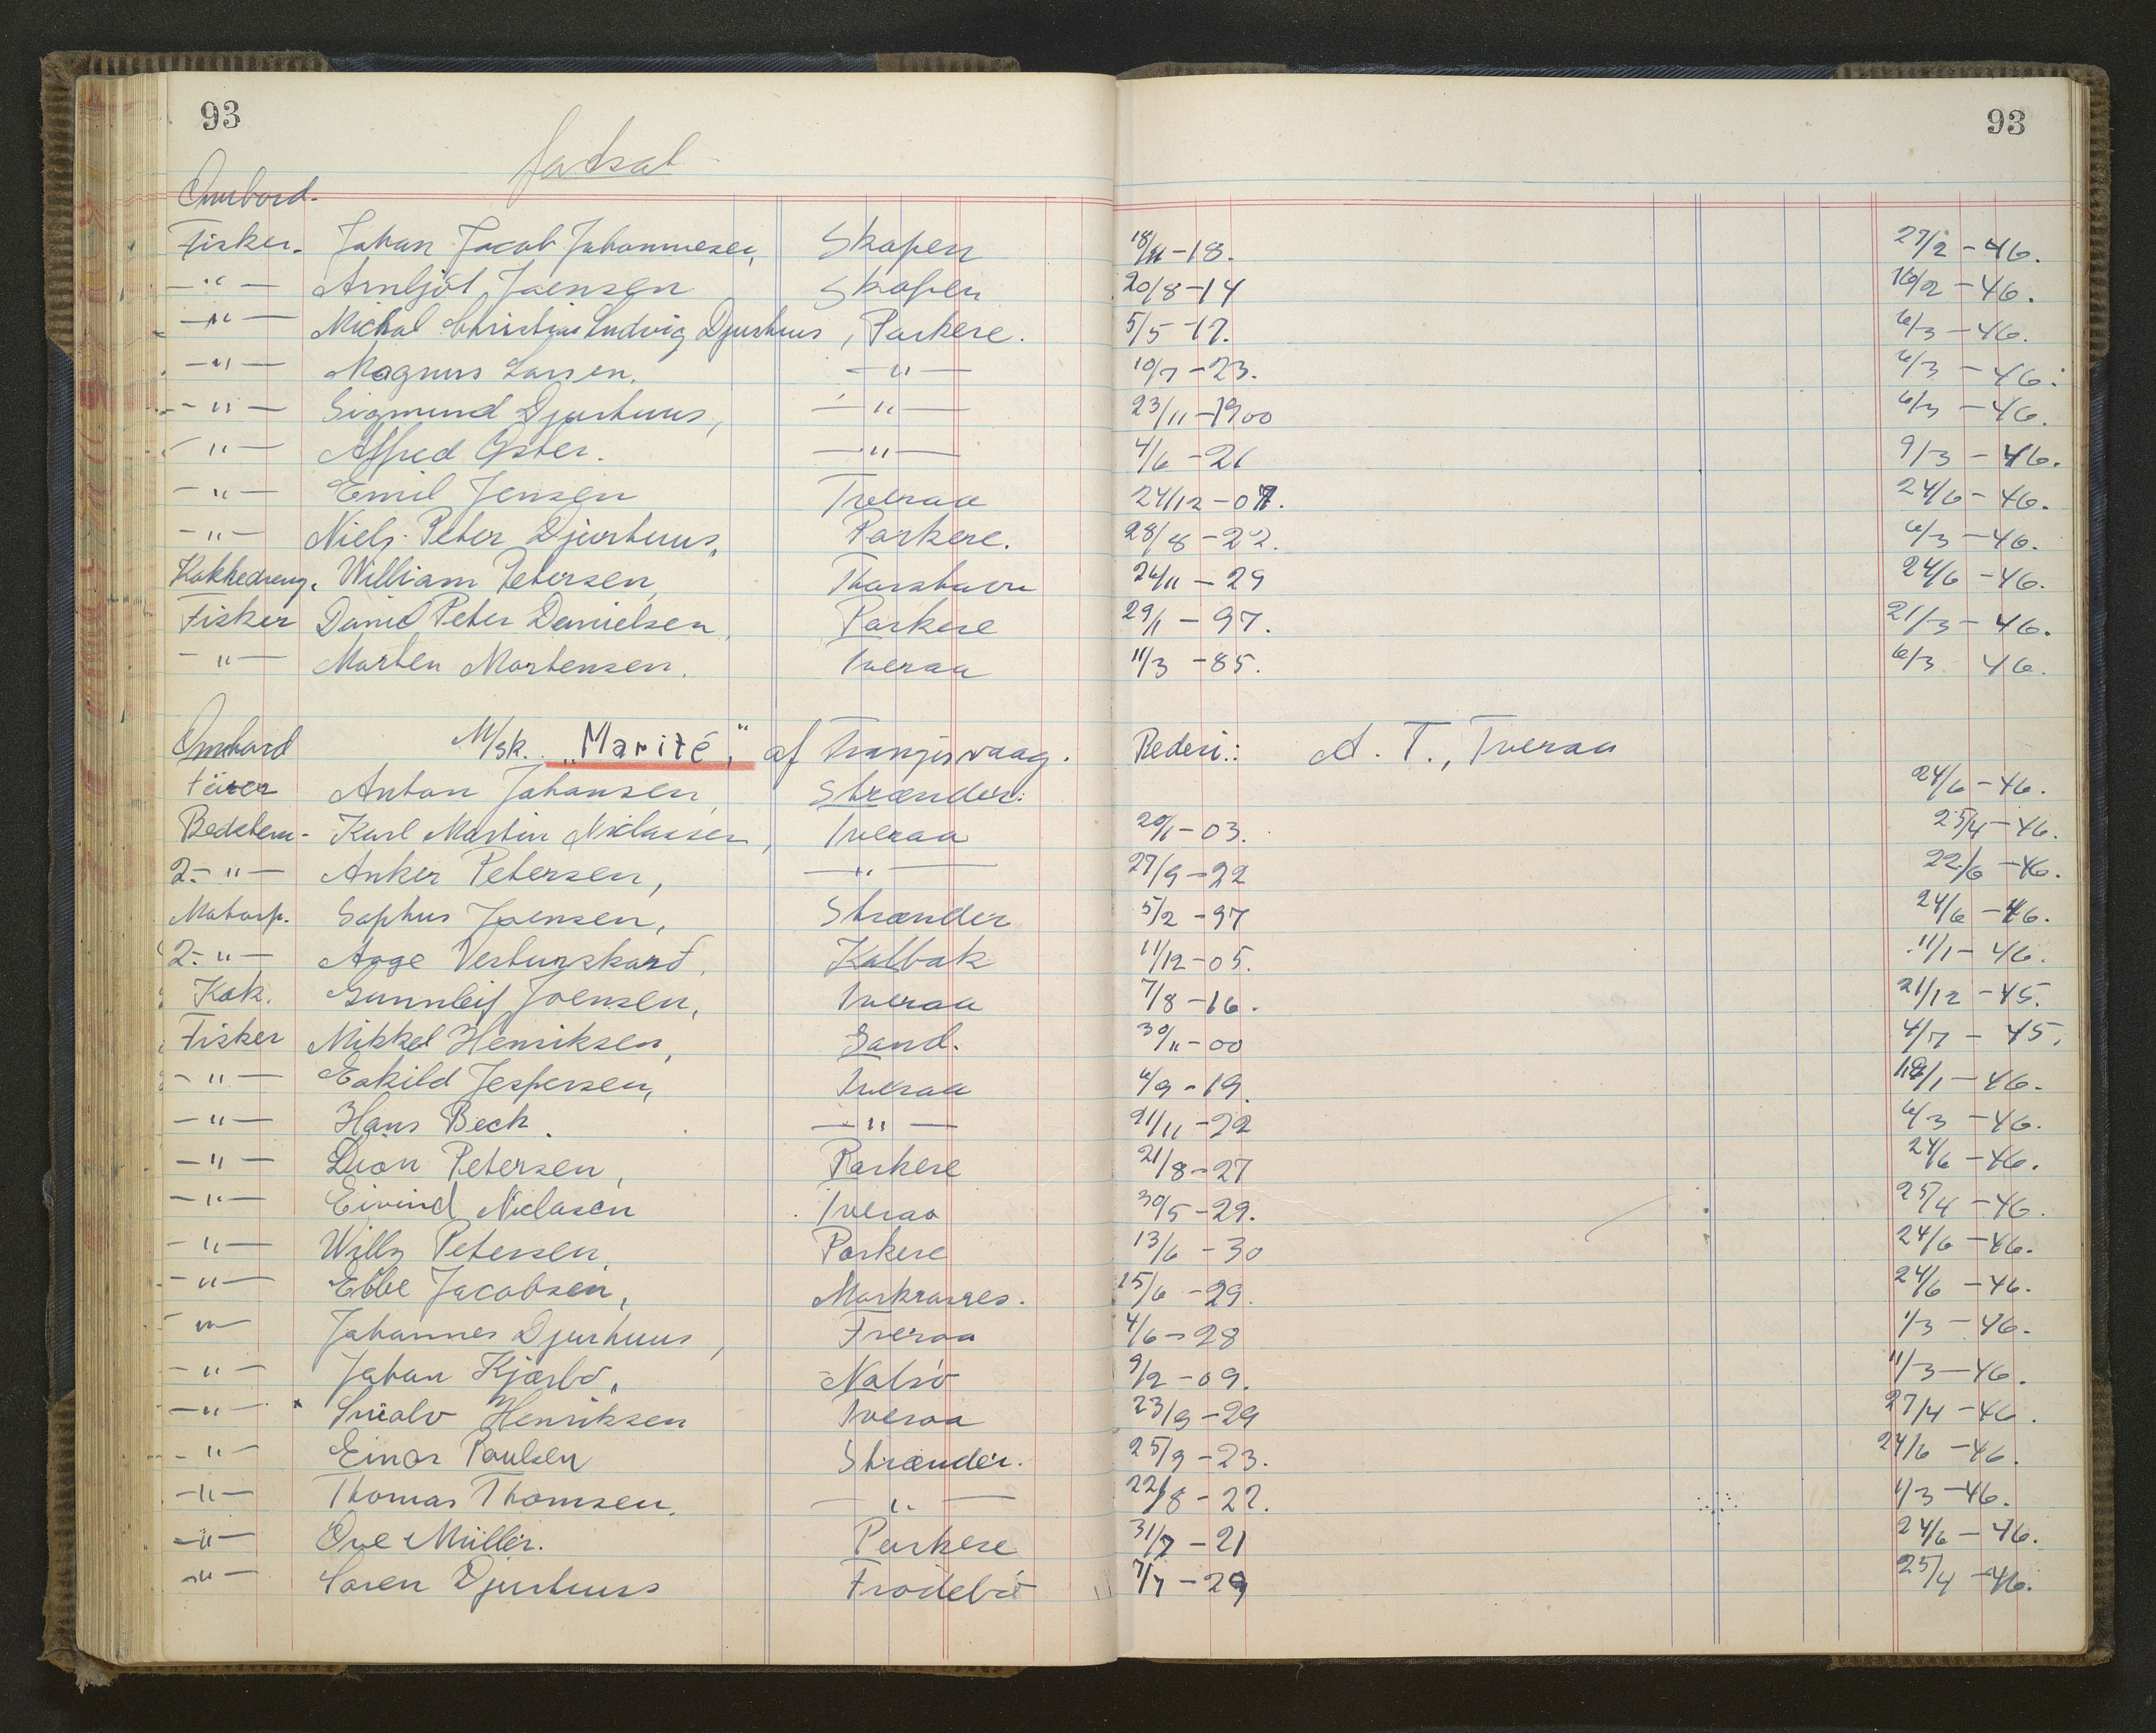 93 93
fortsat
Ombord.
Fisker. Johan Jacob Johannesen, Skopen 18/11-18. 27/2-46.
-"- Arnljót Joensen Skopen 20/8-14 16/2-46.
-"- Michal Christian Ludvig Djurhuus, Porkere. 5/5-17. 6/3-46.
-"- Magnus Larsen. -"- 10/7-23. 6/3-46.
-"- Sigmund Djurhuus, -"- 23/11-1900 6/3-46.
-"- Alfred Øster. -"- 4/6-21 9/3-46.
-"- Emil Jensen Tveraa 24/12-07. 24/6-46.
-"- Niels Peter Djurhuus, Porkere. 28/8-22. 6/3-46.
Kokkedreng. William Petersen, Thorshavn 26/11-29 24/6-46.
Fisker Daniel Peter Danielsen, Porkere 29/1-97. 21/3-46.
-"- Morten Mortensen. Tveraa 11/3-85. 6/3 46.
Ombord M/sk. „Marité," af Trangisvaag. Rederi.: A. T., Tveraa
Fører Anton Johansen, Strænder. 24/6-46.
Bedstem. Karl Martin Niclasen, Tveraa 20/1-03. 25/4-46.
2.-"- Anker Petersen, -"- 27/9-22 22/6-46.
Motorp. Sophus Joensen, Strænder 5/2-97 24/6-46.
2.-"- Aage Vesturskarð, Kalbak 11/12-05. 11/1-46.
Kok. Gunnleif Joensen, Tveraa 7/8-16. 21/12-45.
Fisker Mikkel Henriksen, Sand. 30/11-00 4/7-45.
-"- Eskild Jespersen, Tveraa 6/9-19. 18/1-46.
-"- Hans Beck. -"- 21/11-22 6/3-46.
-"- Dion Petersen, Porkere 21/8-27 24/6-46.
-"- Eivind Niclasen Tveraa 30/5-29. 25/4-46.
-"- Willy Petersen, Porkere 13/6-30 24/6-46.
-"- Ebbe Jacobsen, Morkranes. 15/6-29. 24/6-46.
-"- Johannes Djurhuus, Tveraa 4/6-28 1/3-46.
-"- Johan Kjærbo, Nolsö 9/2-09. 11/3-46.
-"- Snialv Henriksen Tveraa 23/9-29 27/4-46.
-"- Einar Poulsen Strænder. 25/9-23. 24/6-46.
-"- Thomas Thomsen. -"- 22/8-22. 1/3-46.
-"- Ove Müller. Porkere 31/7-21 24/6-46.
-"- Søren Djurhuus Frodebö 7/7-29 25/4-46.